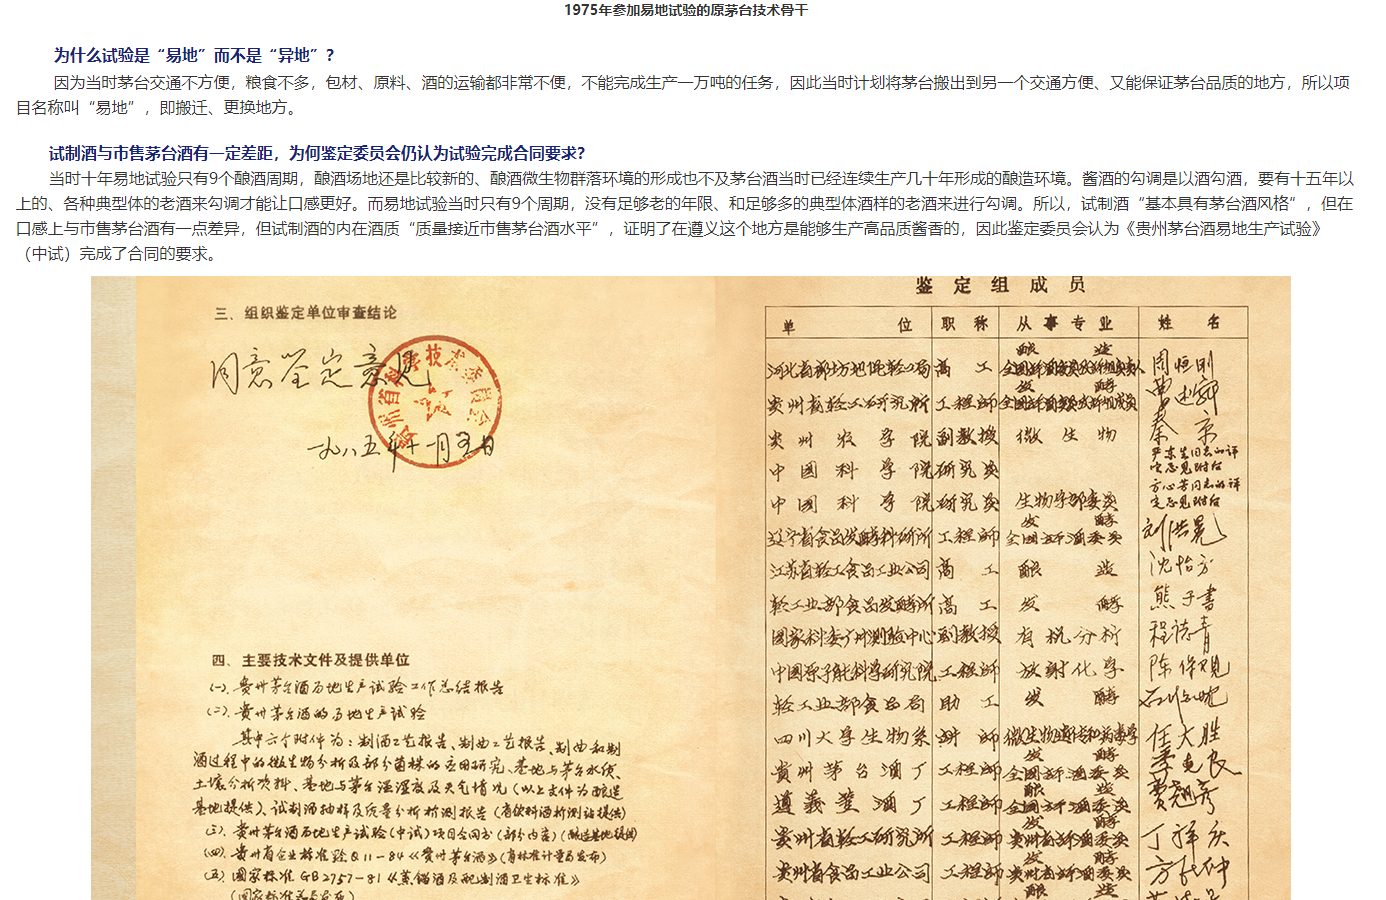 1975年参加易地试验的原茅台技术骨干
为什么试验是“易地”而不是“异地”？
因为当时茅台交通不方便，粮食不多，包材、原料、酒的运输都非常不便，不能完成生产一万吨的任务，因此当时计划将茅台搬出到另一个交通方便、又能保证茅台品质的地方，所以项
目名称叫“易地”，即搬迁、更换地方。
试制酒与市售茅台酒有一定差距，为何鉴定委员会仍认为试验完成合同要求？
当时十年易地试验只有9个酿酒周期，酿酒场地还是比较新的、酿酒微生物群落环境的形成也不及茅台酒当时已经连续生产几十年形成的酿造环境。酱酒的勾调是以酒勾酒，要有十五年以
上的、各种典型体的老酒来勾调才能让口感更好。而易地试验当时只有9个周期，没有足够老的年限、和足够多的典型体酒样的老酒来进行勾调。所以，试制酒“基本具有茅台酒风格”，但在
口感上与市售茅台酒有一点差异，但试制酒的内在酒质“质量接近市售茅台酒水平”，证明了在遵义这个地方是能够生产高品质酱香的，因此鉴定委员会认为《贵州茅台酒易地生产试验》
（中试）完成了合同的要求。
三、组织鉴定单位审查结论
同意鉴定意见
一九八五年十一月五日
四、主要技术文件及提供单位
(一)、贵州茅台酒易地生产试验工作总结报告
(二)、贵州茅台酒的易地生产试验
其中六个附件为：制酒工艺报告、制曲工艺报告、制曲和制
酒过程中的微生物分析及部分菌株的应用研究、基地与茅台水质、
土壤分析资料、基地与茅台温湿度及天气情况（以上文件为酿造
基地提供）、试制酒抽样及质量分析检测报告（省饮料酒检测站提供）
(三)、贵州茅台酒易地生产试验（中试）项目合同书（部分内容）（酿造基地提供）
(四)、贵州省企业标准黔Q11－84《贵州茅台酒》（省标准计量局发布）
(五)、国家标准GB2757－81《蒸馏酒及配制酒卫生标准》
鉴定组成员
单位 职称 从事专业 姓名
高工 酿造 周恒刚
贵州省轻工研究所 工程师 发酵 曹述舜
贵州农学院 副教授 微生物 秦京
中国科学院 研究员
中国科学院 研究员 生物学部委员 方心芳同志的评定意见附后
辽宁省食品发酵科研所 工程师 发酵 全国评酒委员 刘洪晃
江苏省轻工食品工业公司 高工 酿造 沈怡方
轻工业部食品发酵所 高工 发酵 熊子書
国家科委广州测验中心 副教授 有机分析
中国原子能科学研究院 工程师 放射化学 陈
轻工业部食品局 助工 发酵
四川大学生物系 讲师 任大胜
贵州茅台酒厂 工程师 发酵 全国评酒委员 季克良
遵義董酒厂 工程师 酿造 全国评酒委员 贾翘彦
贵州省轻工研究所 工程师 发酵 贵州省评酒委员 丁祥庆
贵州省食品工业公司 工程师 发酵 贵州省评酒委员
酿造